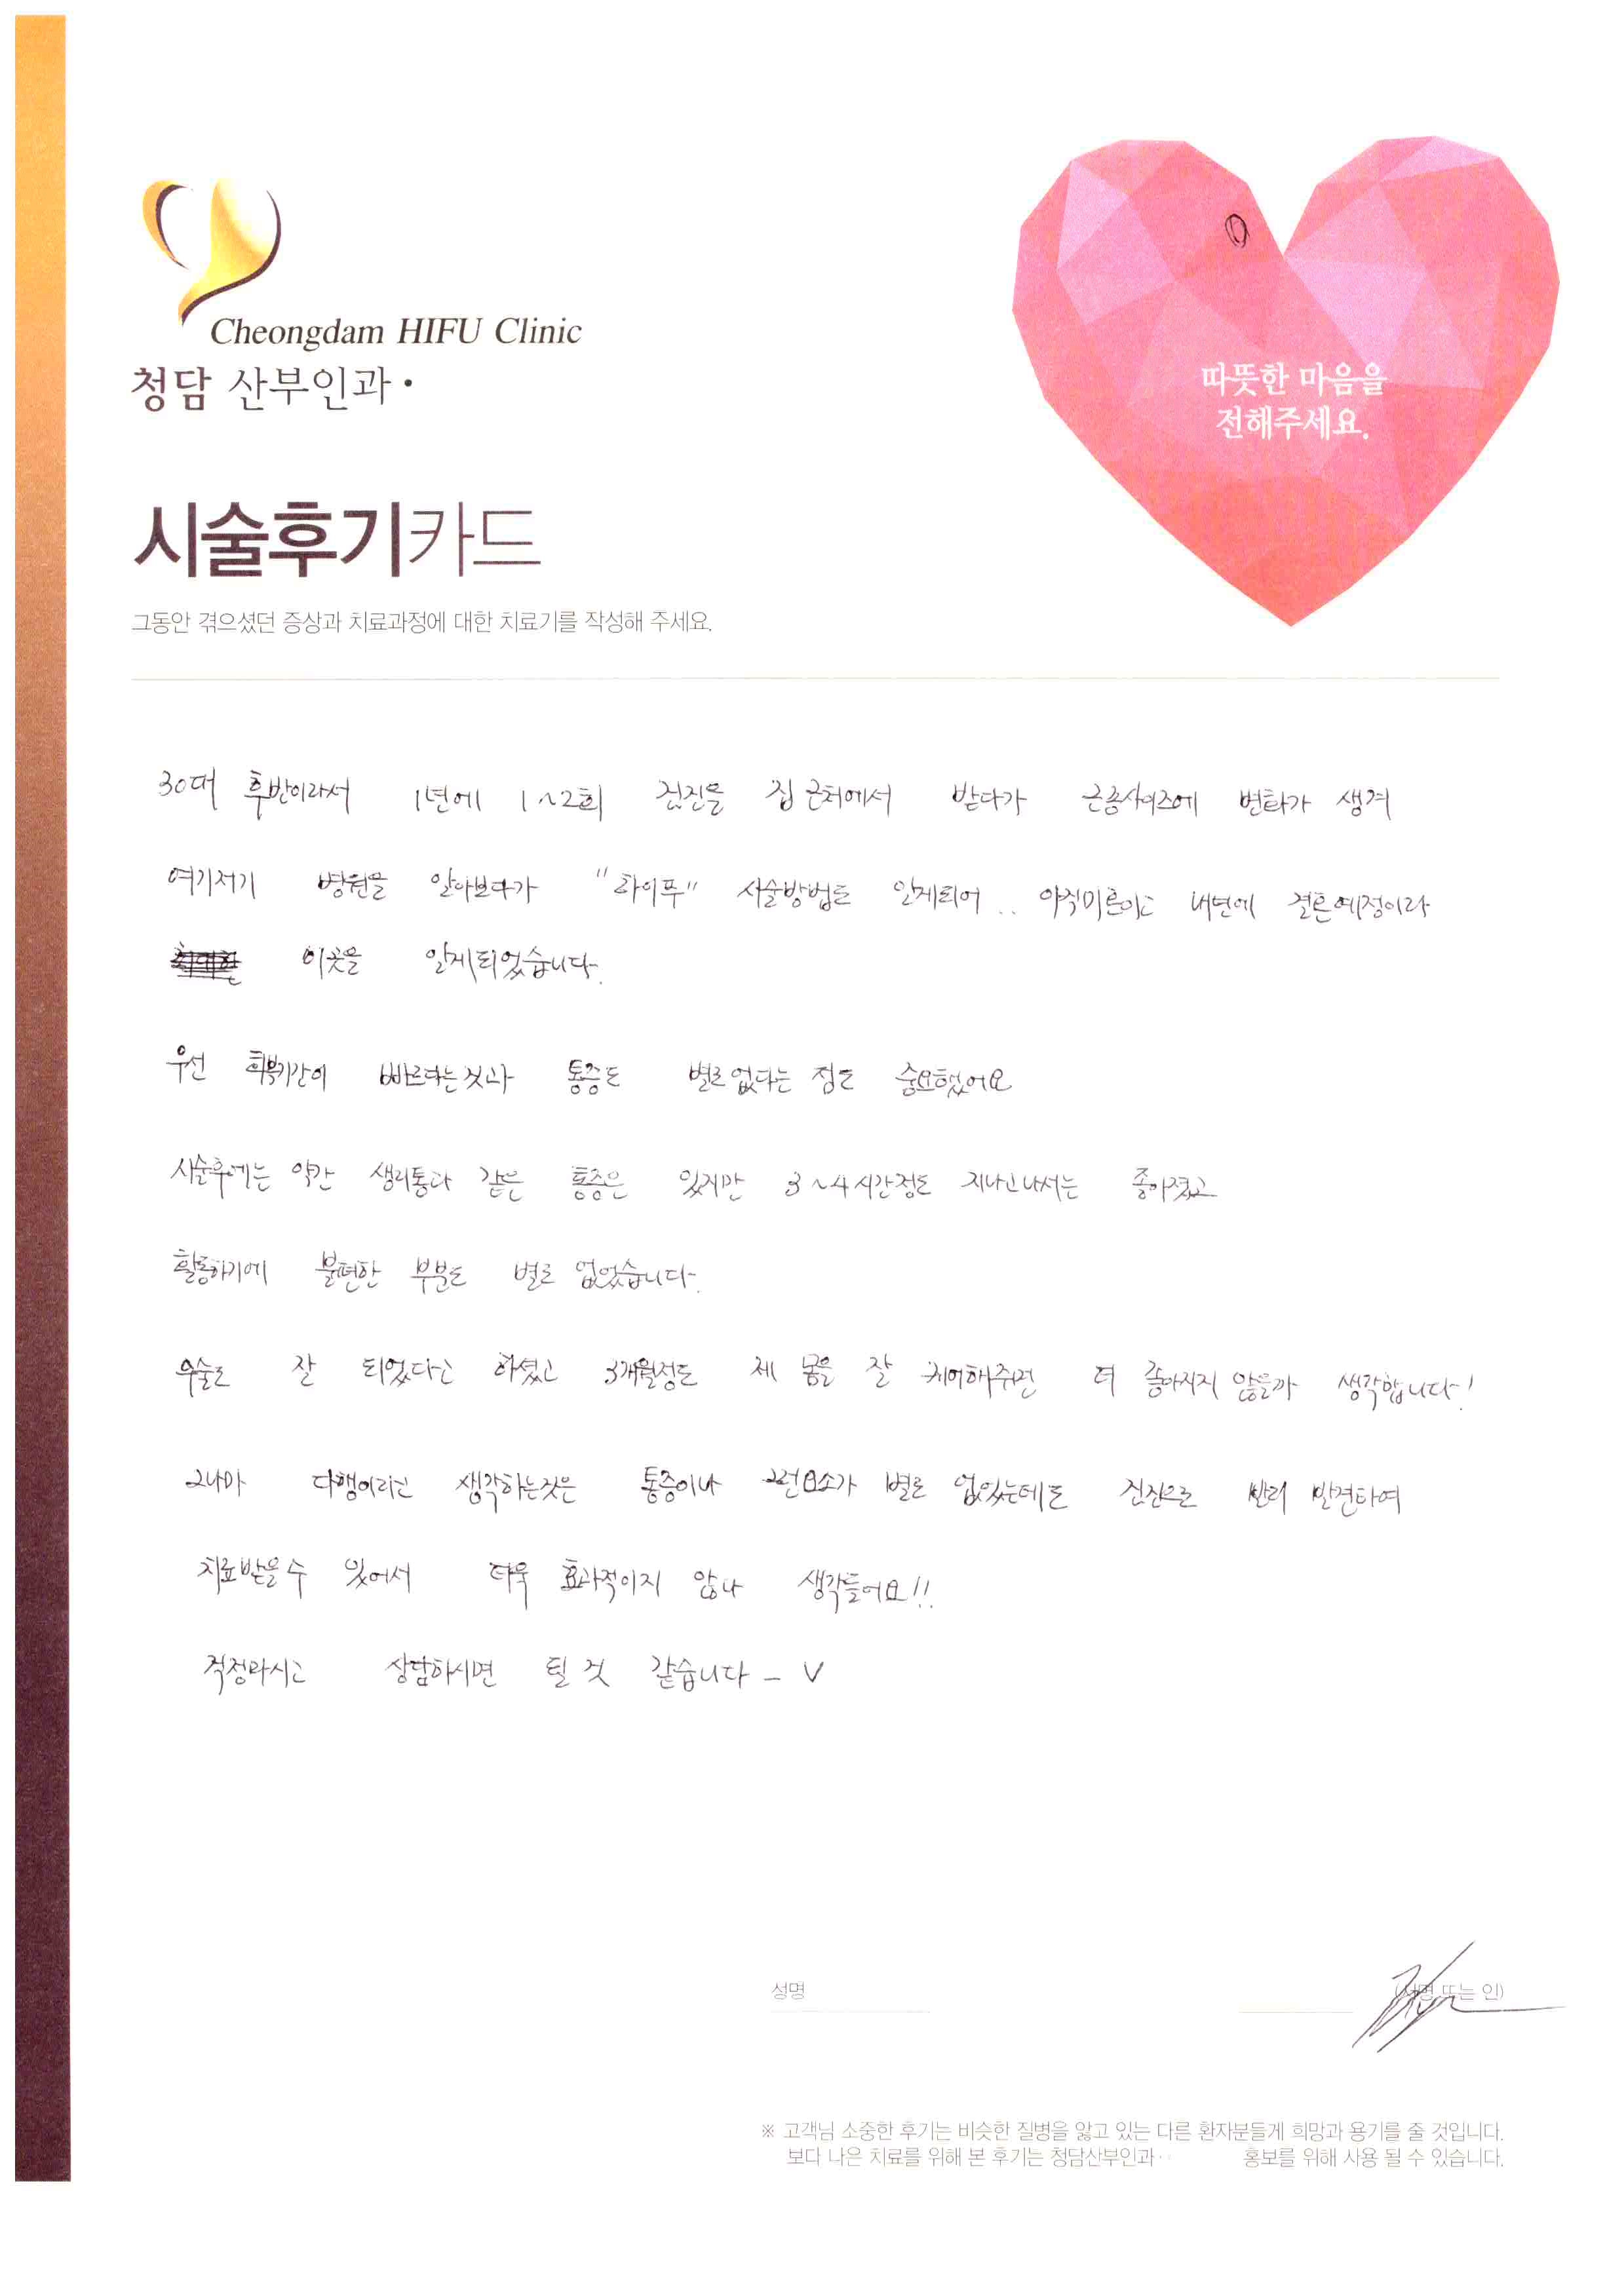 Cheongdam HIFU Clinic
청담 산부인과
따뜻한 마음을
전해주세요.
시술후기카드
그동안 겪으셨던 증상과 치료과정에 대한 치료기를 작성해 주세요.
30대 후반이라서 1년에 1~2회 검진을 집 근처에서 받다가 근종사이즈에 변화가 생겨
여기저기 병원을 알아보다가 "하이푸" 시술방법도 알게되어.. 아직미혼이고 내년에 결혼예정이라
이곳을 알게되었습니다.
우선 회복기간이 빠르다는것과 통증도 별로없다는 점도 중요했어요
시술후에는 약간 생리통과 같은 통증은 있지만 3~4시간정도 지나고나서는 좋아졌고
활동하기에 불편한 부분도 별로 없었습니다.
수술도 잘 되었다고 하셨고 3개월정도 제 몸을 잘 케어해주면 더 좋아지지 않을까 생각합니다!
그나마 다행이라고 생각하는것은 통증이나 그런요소가 별로 없었는데도 검진으로 빨리 발견하여
치료받을수 있어서 더욱 효과적이지 않나 생각들어요!!
걱정마시고 상담하시면 될 것 같습니다 - V
성명
(서명 또는 인)
※ 고객님 소중한 후기는 비슷한 질병을 앓고 있는 다른 환자분들게 희망과 용기를 줄 것입니다.
보다 나은 치료를 위해 본 후기는 청담산부인과·· 홍보를 위해 사용 될 수 있습니다.